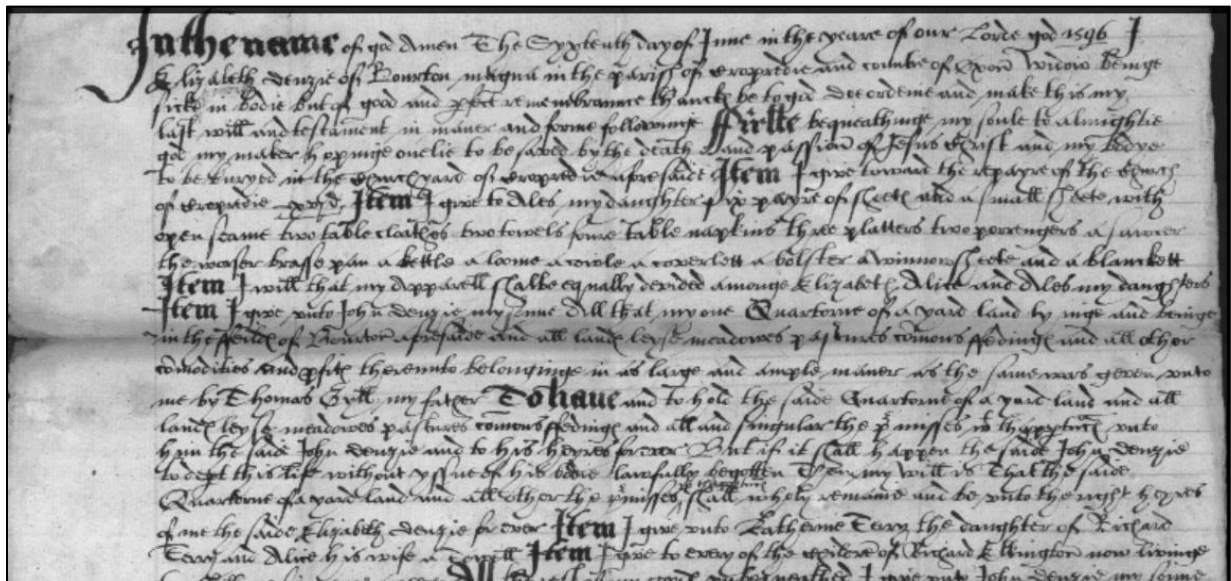 In the name of god Amen The Syxtenth day of June in the yeare of our Lorde god 1596 I
Elizabeth denzie of Bourton magna in the pariss of Cropredie and countie of Oxon widow beinge
sicke in bodie but of good and pfect remembrannce thanckes be to god doe ordeine and make this my
last will and testament in maner and forme followinge ffirste bequeathinge my soule to almightie
god my maker hopinge onelie to be saved by the death and passion of Jesus Christ and my bodye
to be buryed in the Churchyard of Cropredie aforesaide Item I give toward the repayre of the Church
of Cropredie Item I give to Ales my daughter six payre of sheetes and a small sheete with
open seame two table clothes two towels foure table napkins three platters two porrengers a sawcer
the worser brasse pan a kettle a loome a cowle a coverlett a bolster a winnowsheete and a blanckett
Item I will that my Apparell shalbe equally devided amonge Elizabeth Alice and Ales my daughters
Item I give unto John denzie my sonne All that my one Quartorne of a yard land lyinge and beinge
in the ffeildes of Bourton aforesaide and all landes leyse meadowes pastures comons ffedinges and all other
comodities and pfites thereunto belonginge in as large and ample maner as the same was geven unto
me by Thomas Gyll my father To have and to hold the saide Quartorne of a yard land and all
landes leyse meadowes pastures comons ffedinges and all and singular the pmisses unto
him the saide John denzie and to his heyres for ever But if it shall happen the saide John denzie
to dept this life without yssue of his bodie lawfully begotten Then my will is That the saide
Quartorne of a yard land and all other the pmisses shall wholy remaine and be unto the right heyres
of me the saide Elizabeth denzie for ever Item I give unto Katherine Terry the daughter of Richard
Terry and Alice his wife a Item I give to every of the children of Richard Ellvington now livinge
All the rest I give unto John denzie my sonne